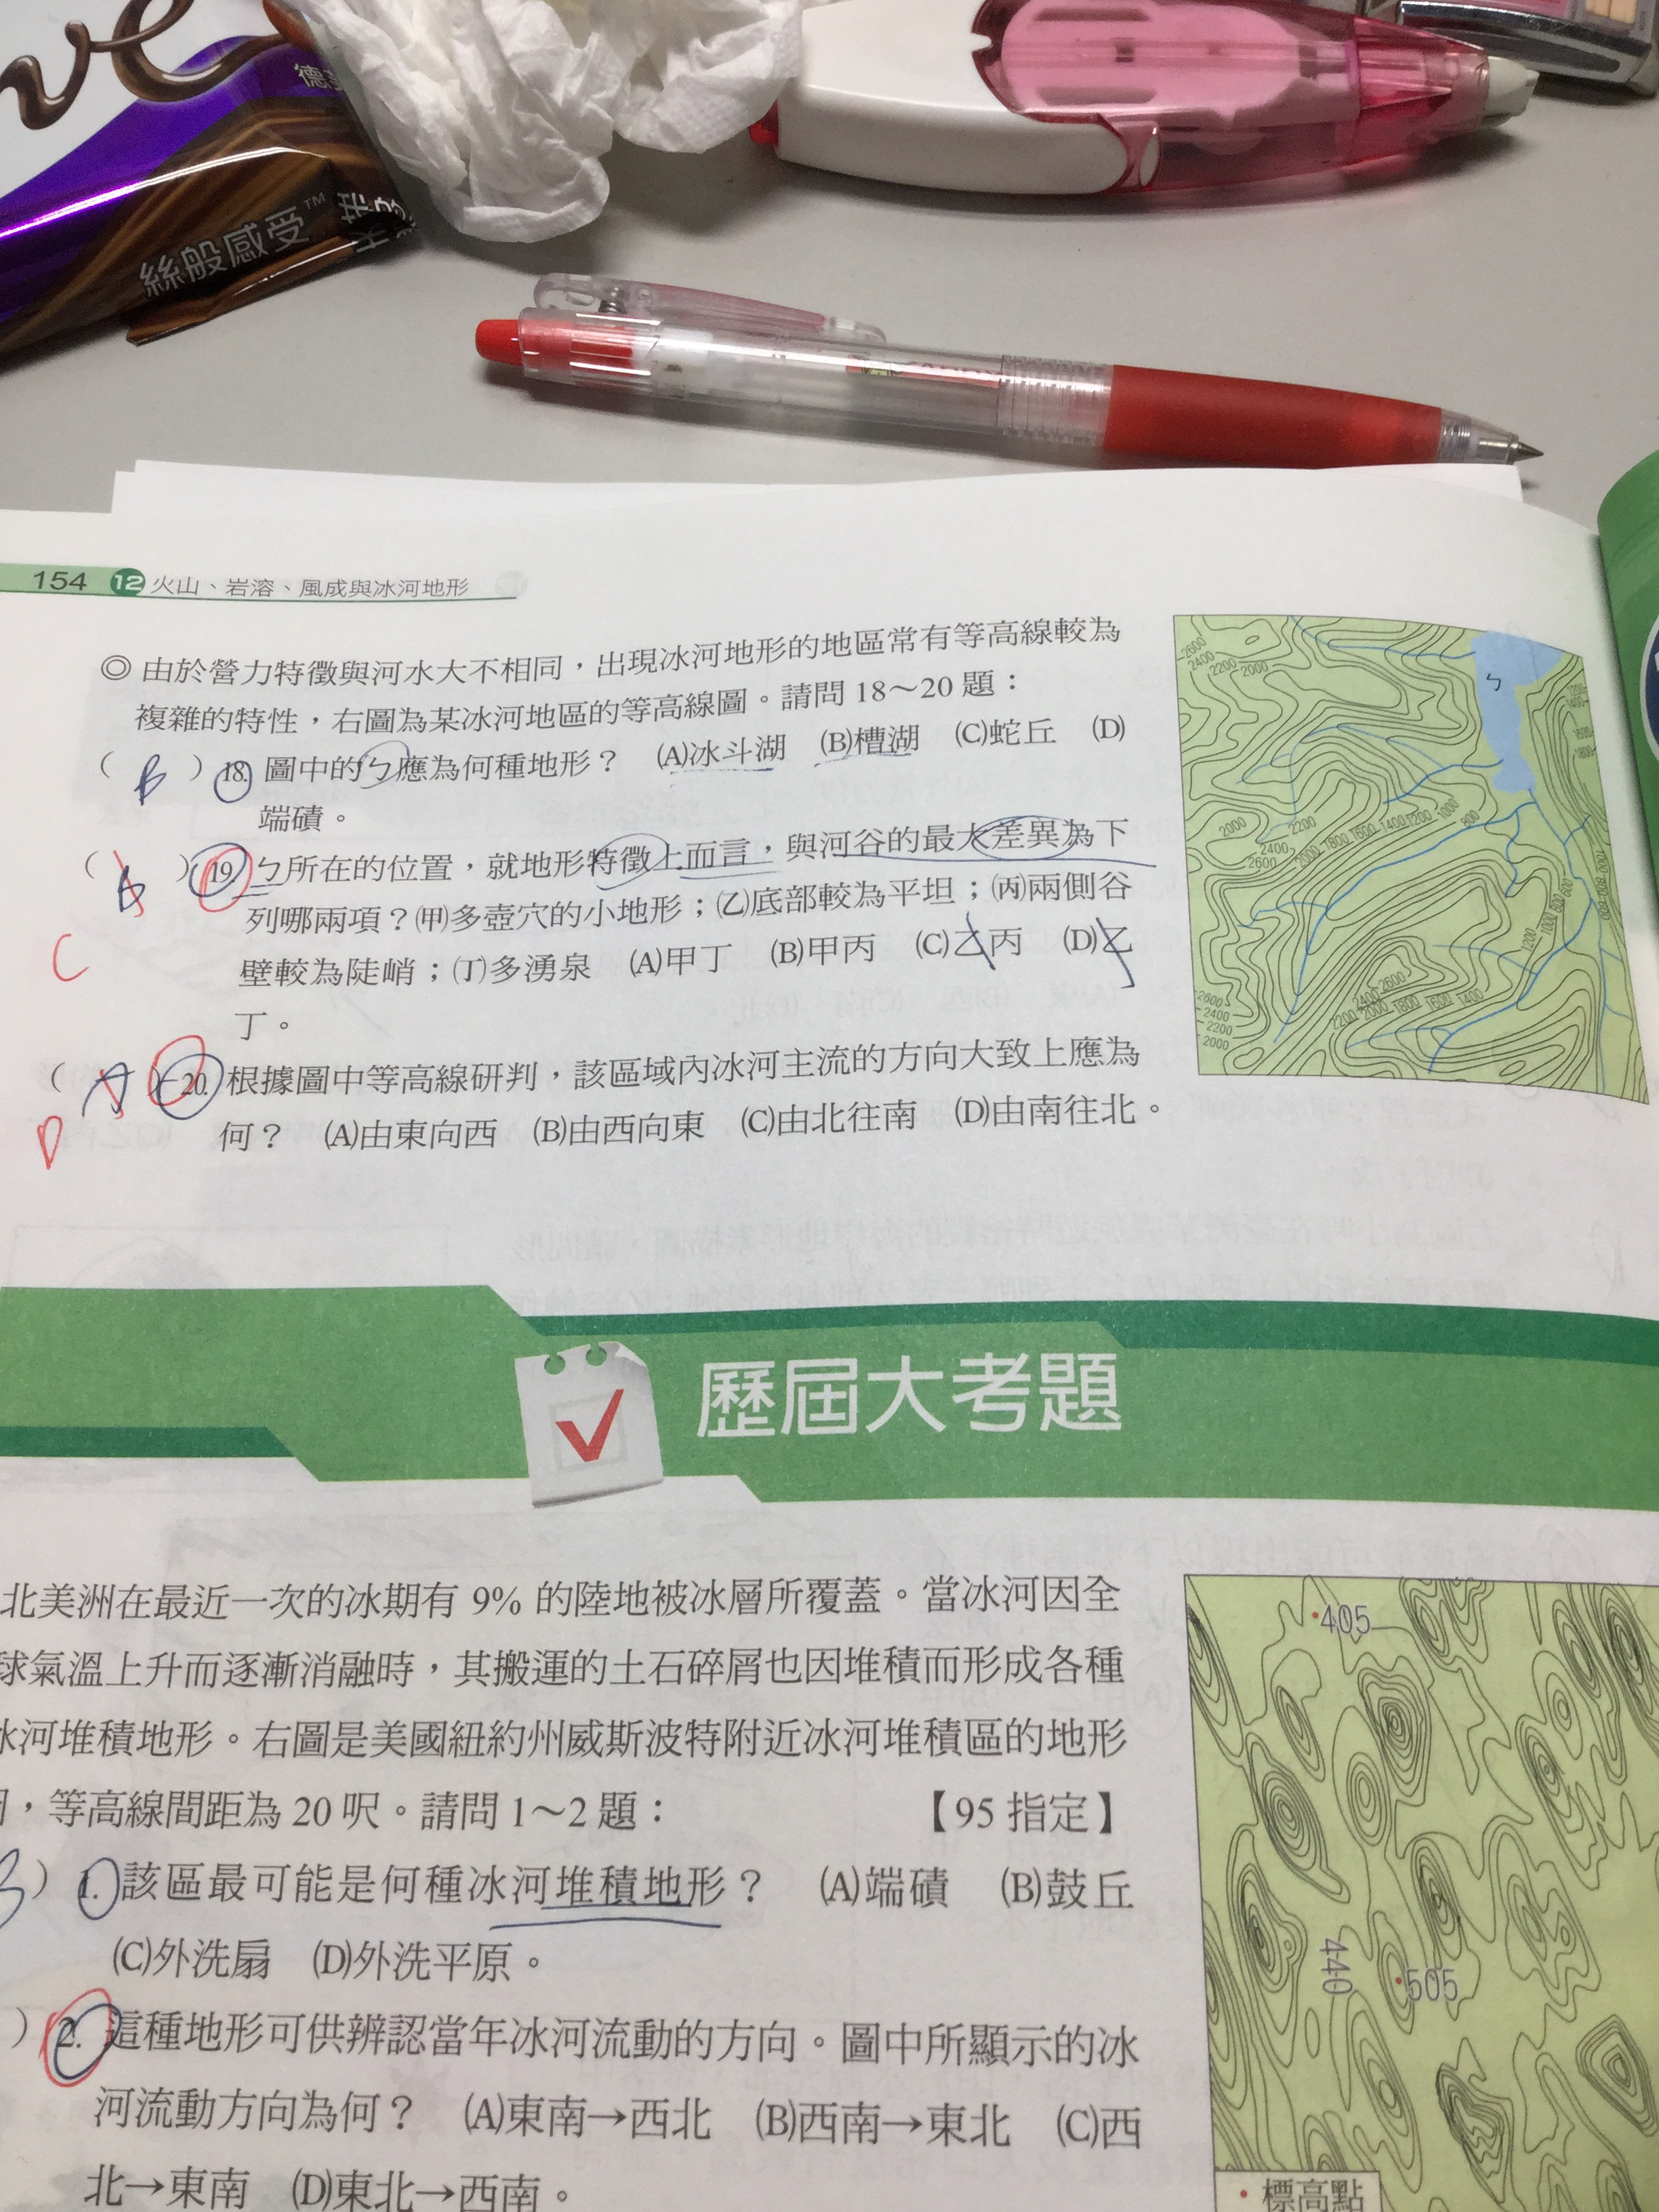 ve
德芙
絲般感受™
154 12 火山、岩溶、風成與冰河地形
◎由於營力特徵與河水大不相同，出現冰河地形的地區常有等高線較為
複雜的特性，右圖為某冰河地區的等高線圖。請問 18～20 題：
( B ) 18. 圖中的ㄅ應為何種地形？ (A)冰斗湖 (B)槽湖 (C)蛇丘 (D)
端磧。
( ) 19. ㄅ所在的位置，就地形特徵上而言，與河谷的最大差異為下
列哪兩項？(甲)多壺穴的小地形；(乙)底部較為平坦；(丙)兩側谷
C 壁較為陡峭；(丁)多湧泉 (A)甲丁 (B)甲丙 (C)乙丙 (D)乙
丁。
( A ) 20. 根據圖中等高線研判，該區域內冰河主流的方向大致上應為
D 何？ (A)由東向西 (B)由西向東 (C)由北往南 (D)由南往北。
ㄅ
2600
2400
2200
2000
2000
2200
2400
2600
2000
1800
1600
1400
1200
1000
800
2600
2400
2200
2000
2600
2400
2200
2000
1800
1600
1400
1200
1000
800
600
歷屆大考題
北美洲在最近一次的冰期有 9% 的陸地被冰層所覆蓋。當冰河因全
球氣溫上升而逐漸消融時，其搬運的土石碎屑也因堆積而形成各種
冰河堆積地形。右圖是美國紐約州威斯波特附近冰河堆積區的地形
，等高線間距為 20 呎。請問 1～2 題： 【95 指定】
) 1. 該區最可能是何種冰河堆積地形？ (A)端磧 (B)鼓丘
(C)外洗扇 (D)外洗平原。
) 2. 這種地形可供辨認當年冰河流動的方向。圖中所顯示的冰
河流動方向為何？ (A)東南→西北 (B)西南→東北 (C)西
北→東南 (D)東北→西南。
405
440
505
標高點